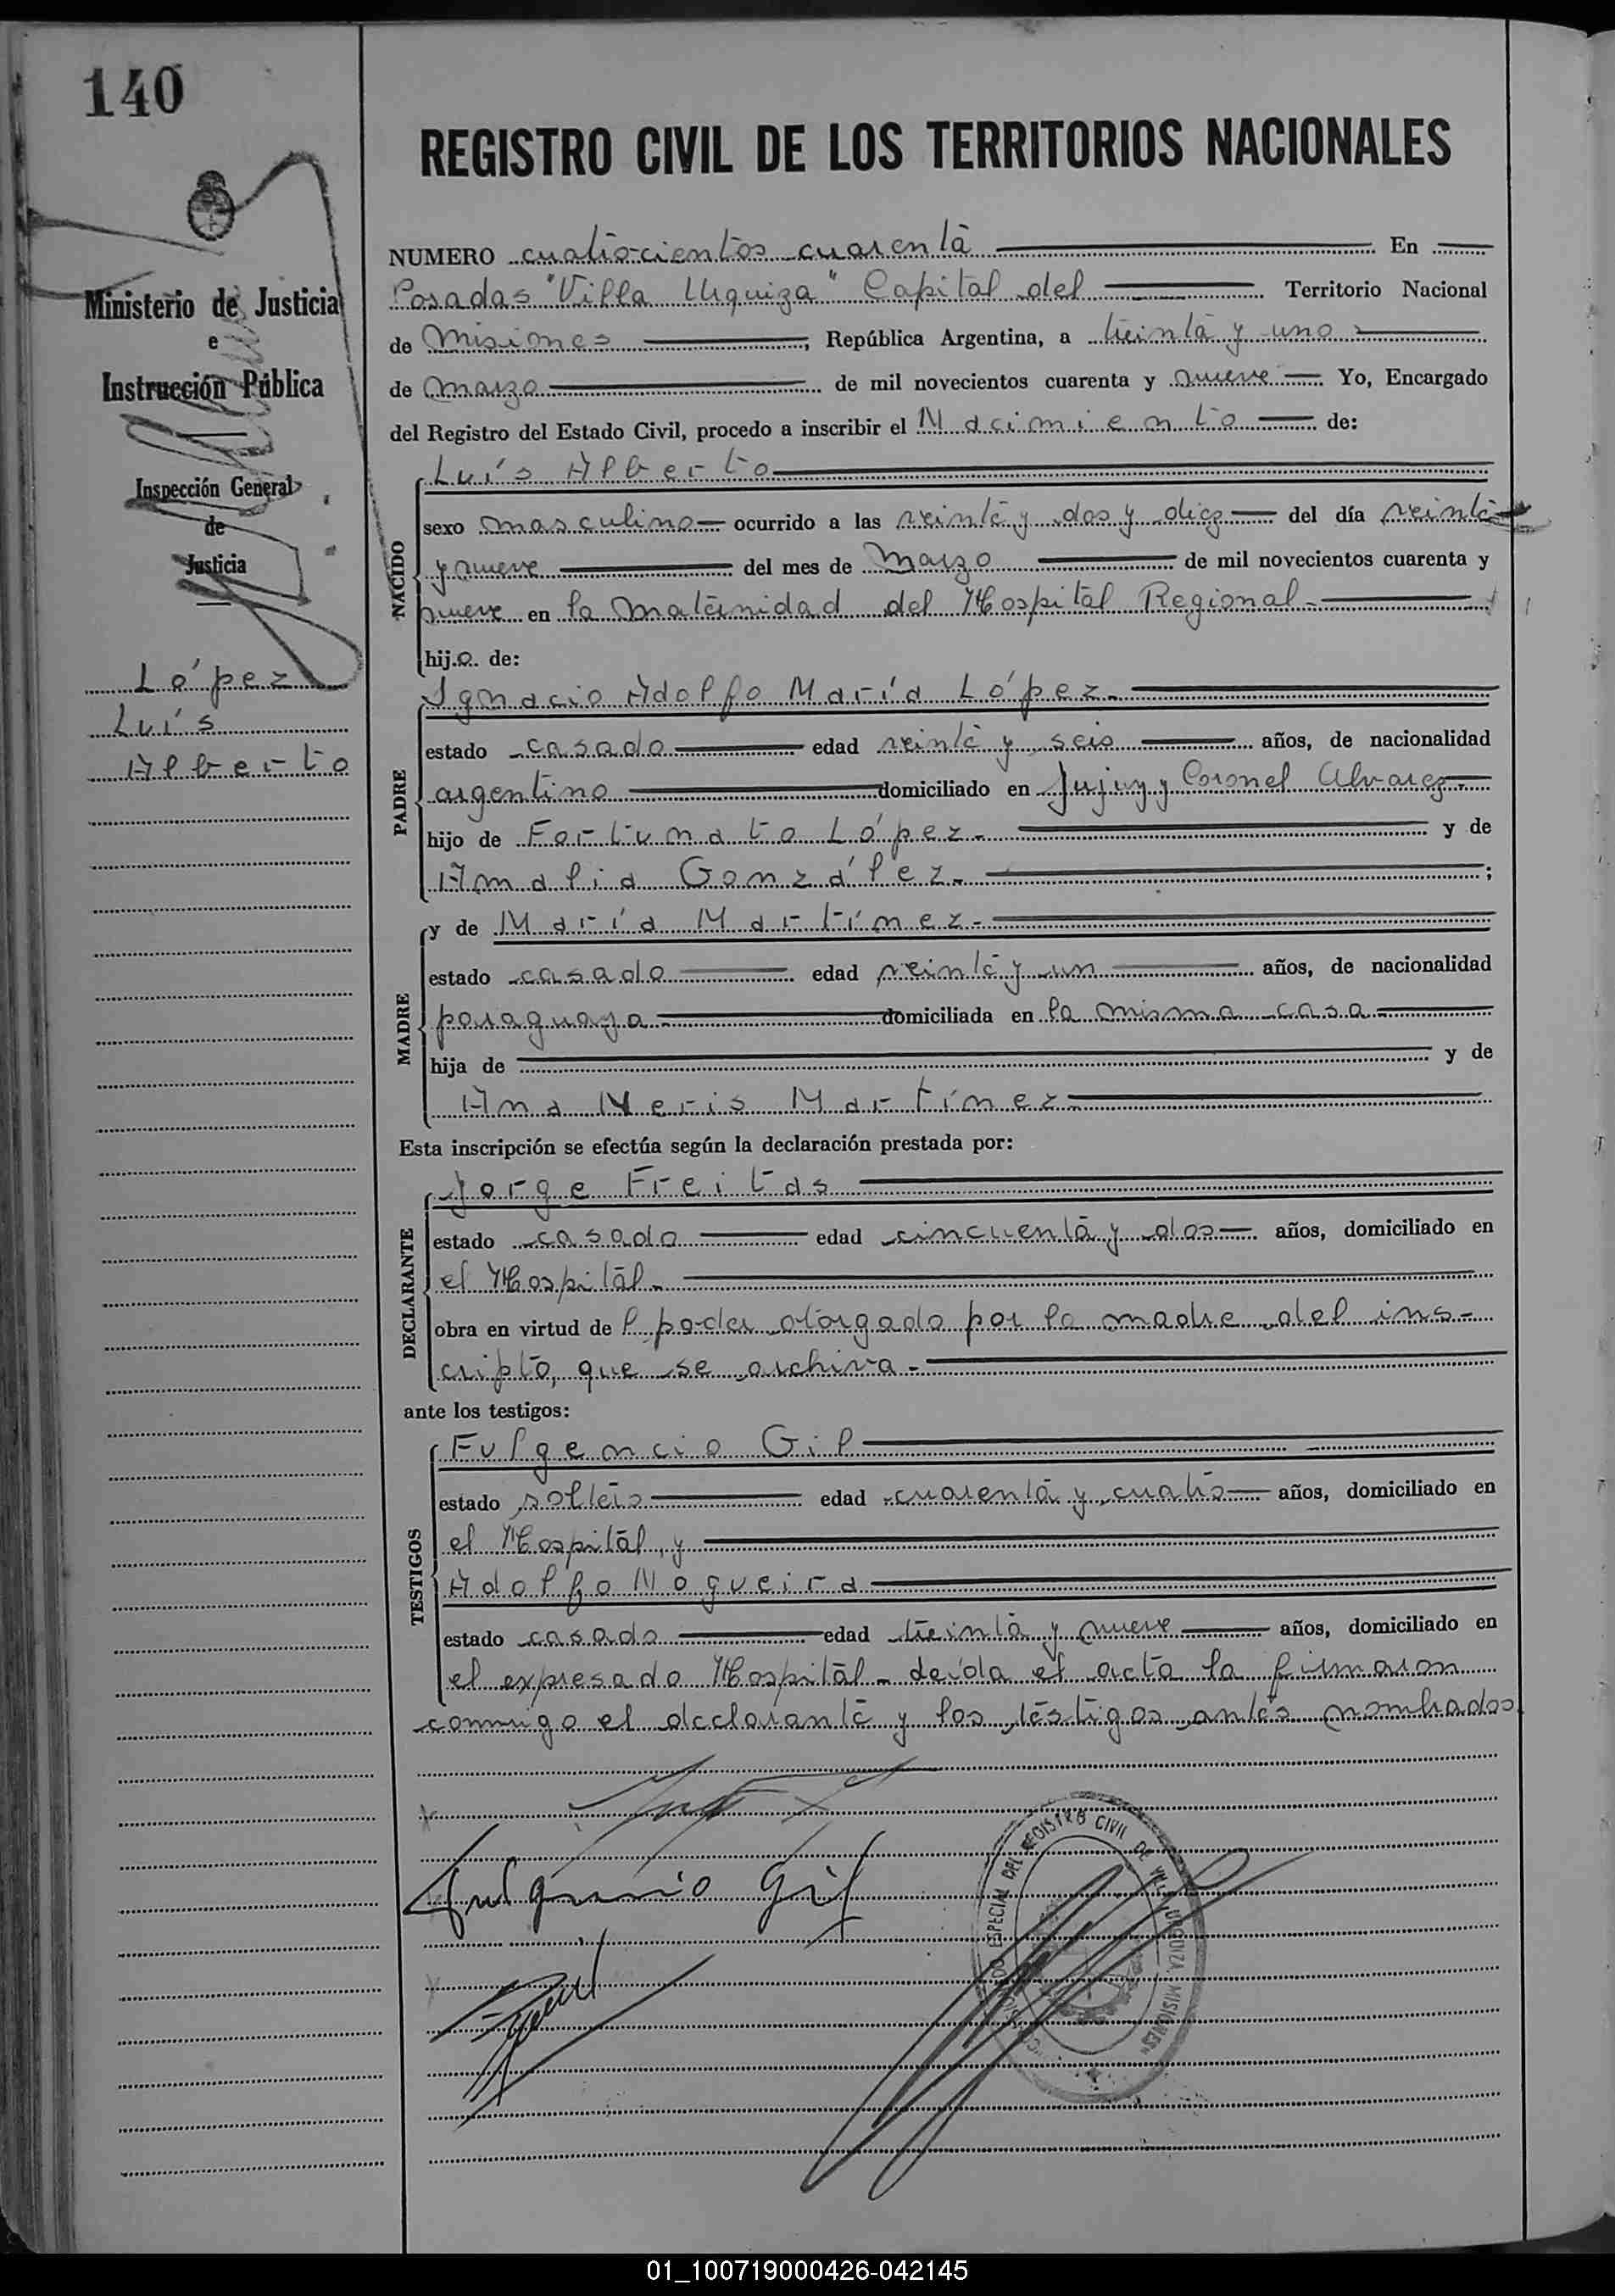 140
REGISTRO CIVIL DE LOS TERRITORIOS NACIONALES
Ministerio de Justicia
e
Instrucción Pública
Inspección General
de
Justicia
López
Luís
Alberto
NUMERO cuatrocientos cuarenta En
Posadas "Villa Urquiza" Capital del Territorio Nacional
de Misiones, República Argentina, a treinta y uno
de marzo de mil novecientos cuarenta y nueve Yo, Encargado
del Registro del Estado Civil, procedo a inscribir el Nacimiento de:
NACIDO
Luís Alberto
sexo masculino ocurrido a las veinte y dos y diez del día veinte
y nueve del mes de Marzo de mil novecientos cuarenta y
nueve en la Maternidad del Hospital Regional.
hijo de:
PADRE
Ignacio Adolfo María López.
estado casado edad veinte y seis años, de nacionalidad
argentino domiciliado en Jujuy y Coronel Alvarez.
hijo de Fortunato López. y de
Amalia González. ;
MADRE
y de María Martínez.
estado casada edad veinte y un años, de nacionalidad
paraguaya. domiciliada en la misma casa.
hija de y de
Ana Neris Martínez.
Esta inscripción se efectúa según la declaración prestada por:
DECLARANTE
Jorge Freitas
estado casado edad cincuenta y dos años, domiciliado en
el Hospital.
obra en virtud del poder otorgado por la madre del ins-
cripto, que se archiva.
ante los testigos:
TESTIGOS
Fulgencio Gil
estado soltero edad cuarenta y cuatro años, domiciliado en
el Hospital, y
Adolfo Nogueira
estado casado edad treinta y nueve años, domiciliado en
el expresado Hospital. Leída el acta la firmaron
conmigo el declarante y los testigos antes nombrados.
Fulgencio Gil
ESPECIAL DEL REGISTRO CIVIL DE VILLA URQUIZA MISIONES
01_100719000426-042145